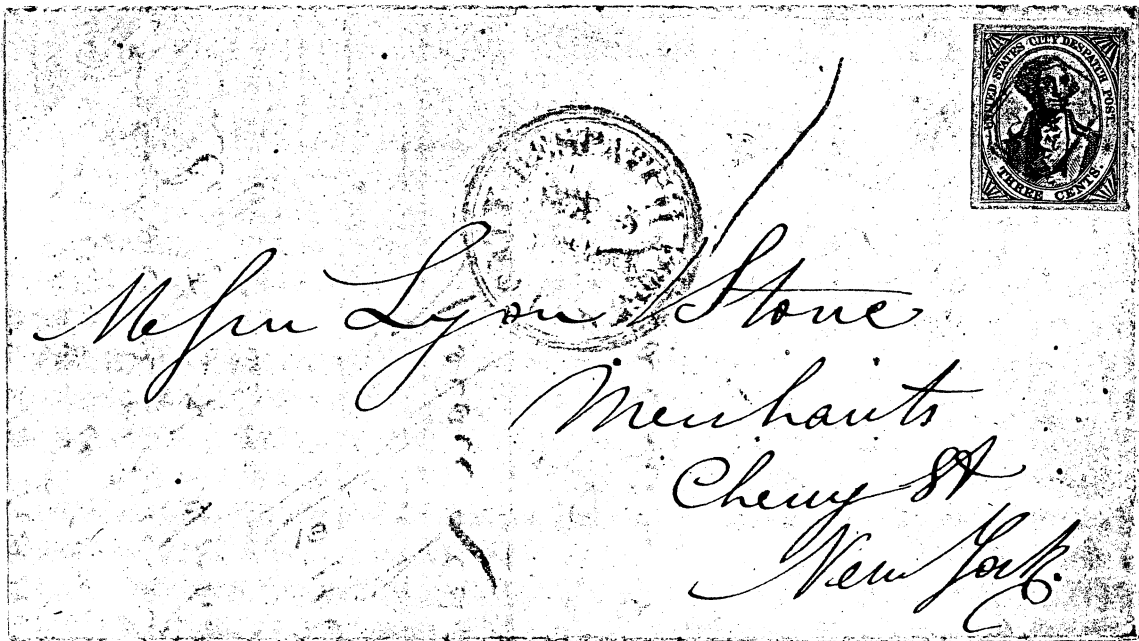 UNITED STATES CITY DESPATCH POST.
THREE CENTS.
DESPATCH
Messrs Lyon Stone
Merchants
Cherry St
New York.